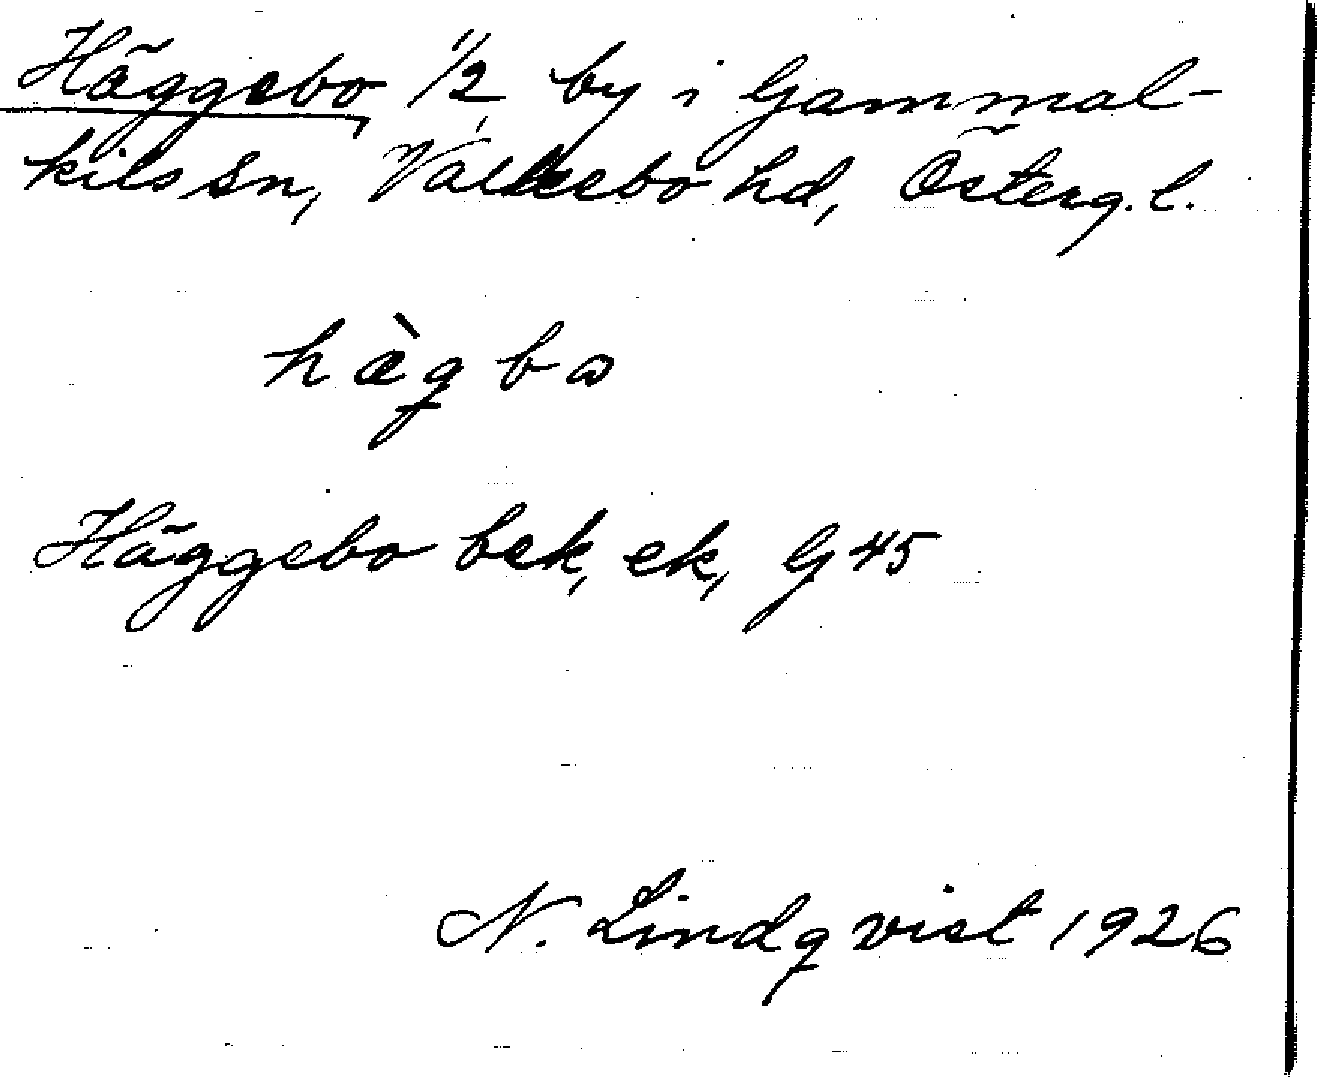 Häggebo, 1/2, by i Gammal-
kils sn, Valkebo hd, Österg. l.
hæ̀gbo
Häggebo bek, ek, G 45
N. Lindqvist 1926